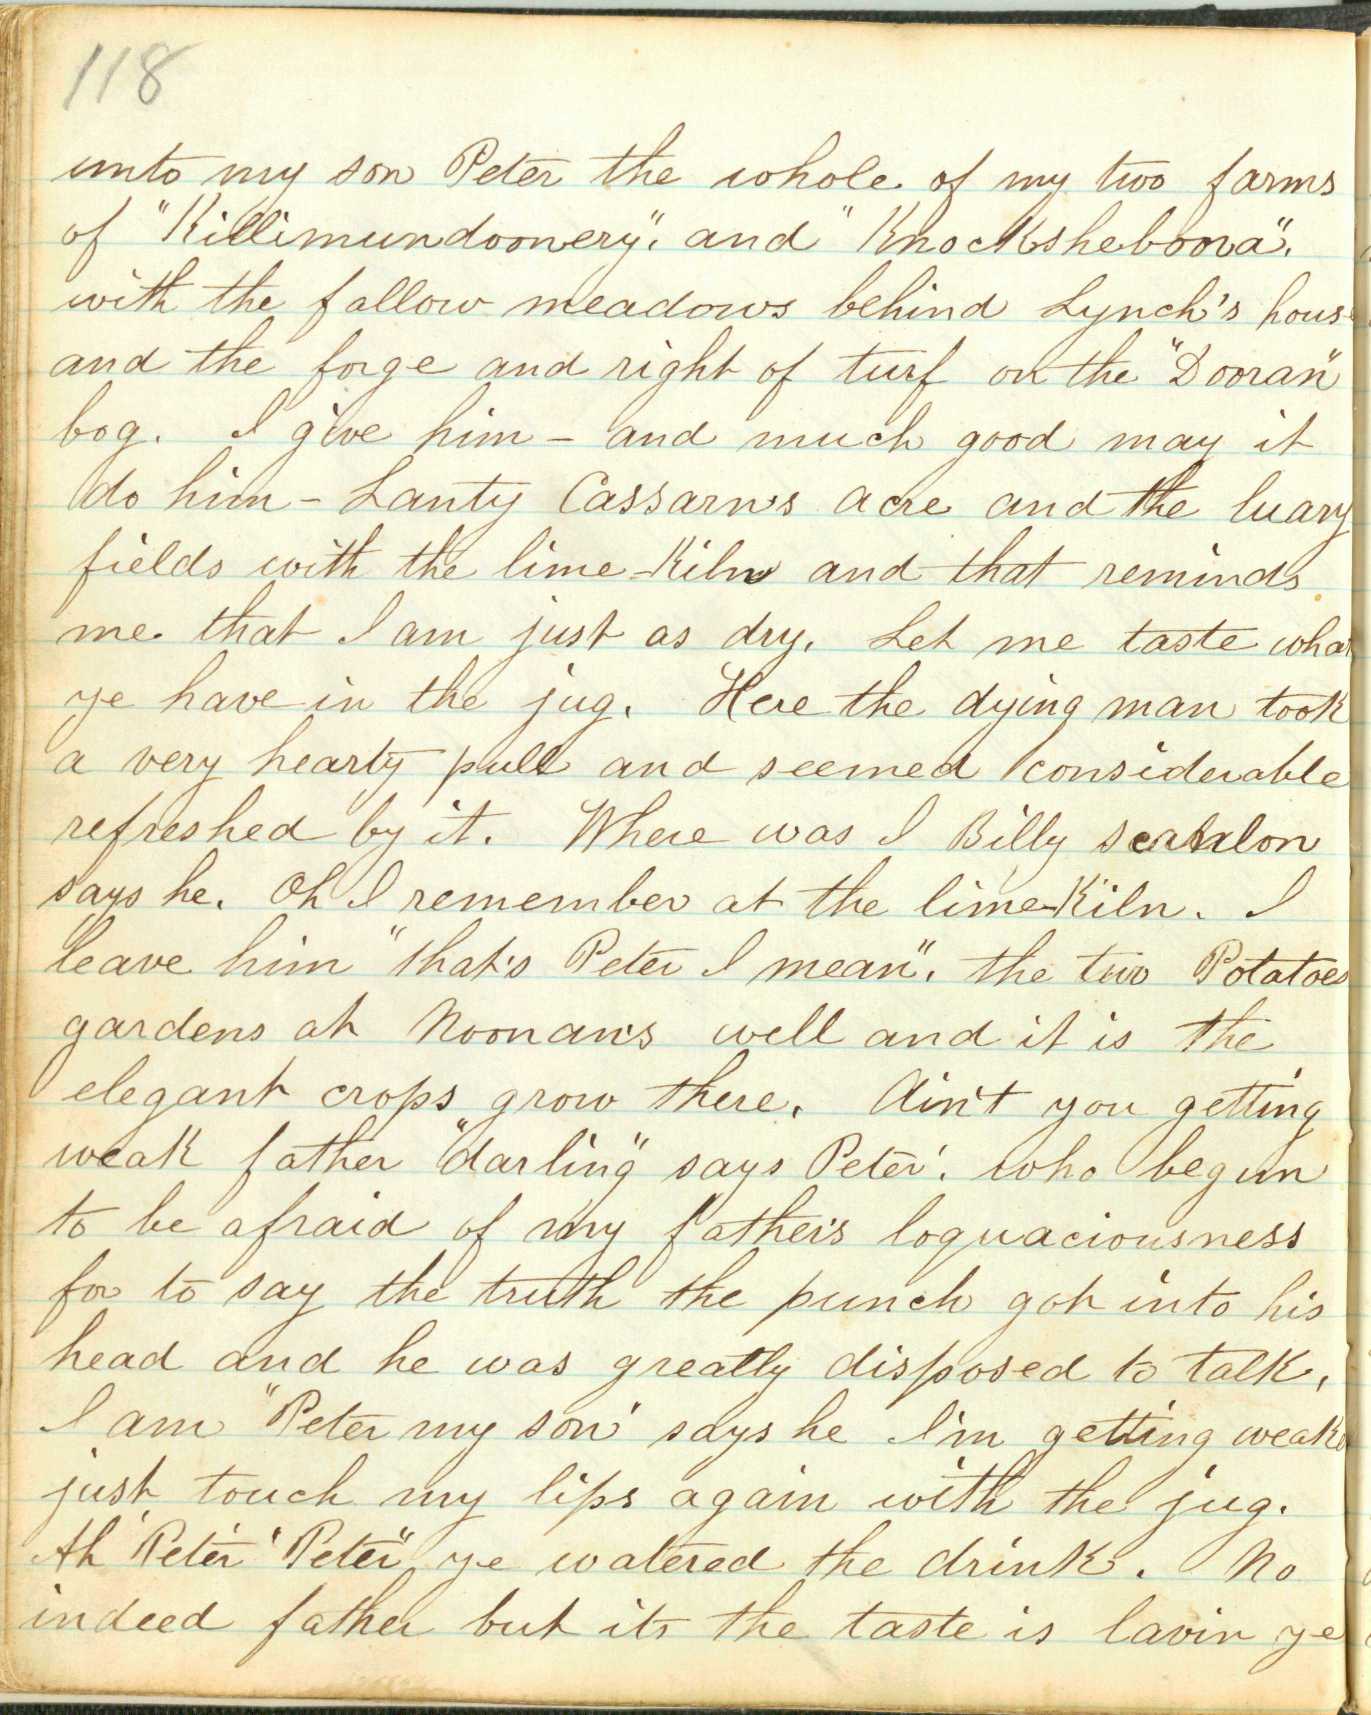 118
unto my son Peter the whole of my two farms
of "Killimundoonery". and "Knocksheboora".
with the fallow meadows behind Lynch's hous
and the forge and right of turf on the "Dooran"
bog. I give him - and much good may it
do him - Lanty Cassarn's acre and the luary
fields with the lime-Kiln and that reminds
me that I am just as dry. Let me taste what
ye have in the jug. Here the dying man took
a very hearty pull and seemed considerable
refreshed by it. Where was I Billy Scanlon
says he. Oh I remember at the lime-Kiln. I
leave him "that's Peter I mean". the two Potatoes
gardens at Noonan's well and it is the
elegant crops grow there. Ain't you getting
weak father "darling" says Peter'. who begun
to be afraid of my father's loquaciousness
for to say the truth the punch got into his
head and he was greatly disposed to talk.
I am "Peter my son' says he I'm getting weak
just touch my lips again with the jug.
Ah 'Peter' 'Peter" ye watered the drink. No
indeed father but its the taste is lavin ye